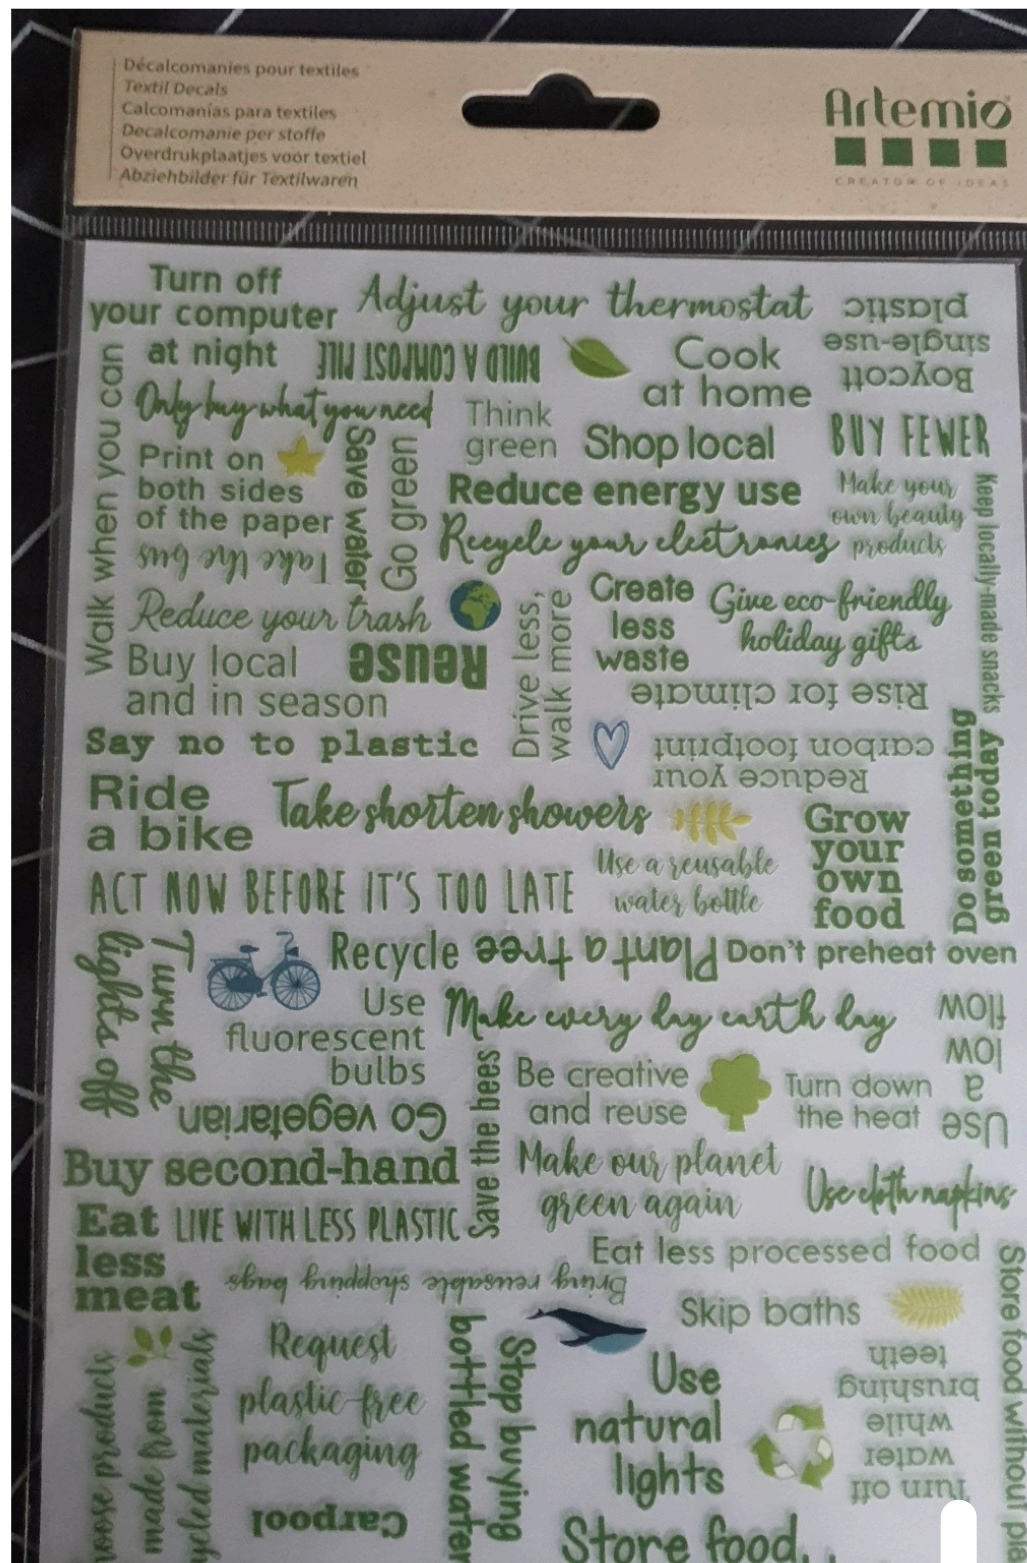 Décalcomanies pour textiles
Textil Decals
Calcomanías para textiles
Decalcomanie per stoffe
Overdrukplaatjes voor textiel
Abziehbilder für Textilwaren
Artemio
CREATOR OF IDEAS
Turn off
your computer
at night
Adjust your thermostat
Boycott
single-use
plastic
BUILD A COMPOST PILE
Cook
at home
Walk when you can
Only buy what you need
Think
green
Shop local
BUY FEWER
Print on
both sides
of the paper
Save water
Go green
Reduce energy use
Make your
own beauty
products
Keep locally-made snacks
Recycle your electronics
Take the bus
Reduce your trash
Drive less,
walk more
Create
less
waste
Give eco-friendly
holiday gifts
Buy local
and in season
Reuse
Rise for climate
Say no to plastic
Reduce your
carbon footprint
Do something
green today
Ride
a bike
Take shorten showers
Grow
your
own
food
Use a reusable
water bottle
ACT NOW BEFORE IT'S TOO LATE
Turn the
lights off
Recycle
Plant a tree
Don't preheat oven
Use
fluorescent
bulbs
Make every day earth day
Use
a
low
flow
Be creative
and reuse
Turn down
the heat
Go vegetarian
Save the bees
Buy second-hand
Make our planet
green again
Use cloth napkins
Eat
less
meat
LIVE WITH LESS PLASTIC
Eat less processed food
Bring reusable shopping bags
Skip baths
Store food without
products
made from
materials
Request
plastic-free
packaging
Stop buying
bottled water
Use
natural
lights
Turn off
water
while
brushing
teeth
Carpool
Store food